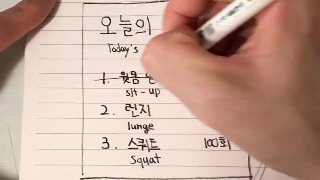 오늘의
Today's
1. 윗몸
sit-up
2. 런지
lunge
3. 스쿼트 100회
squat